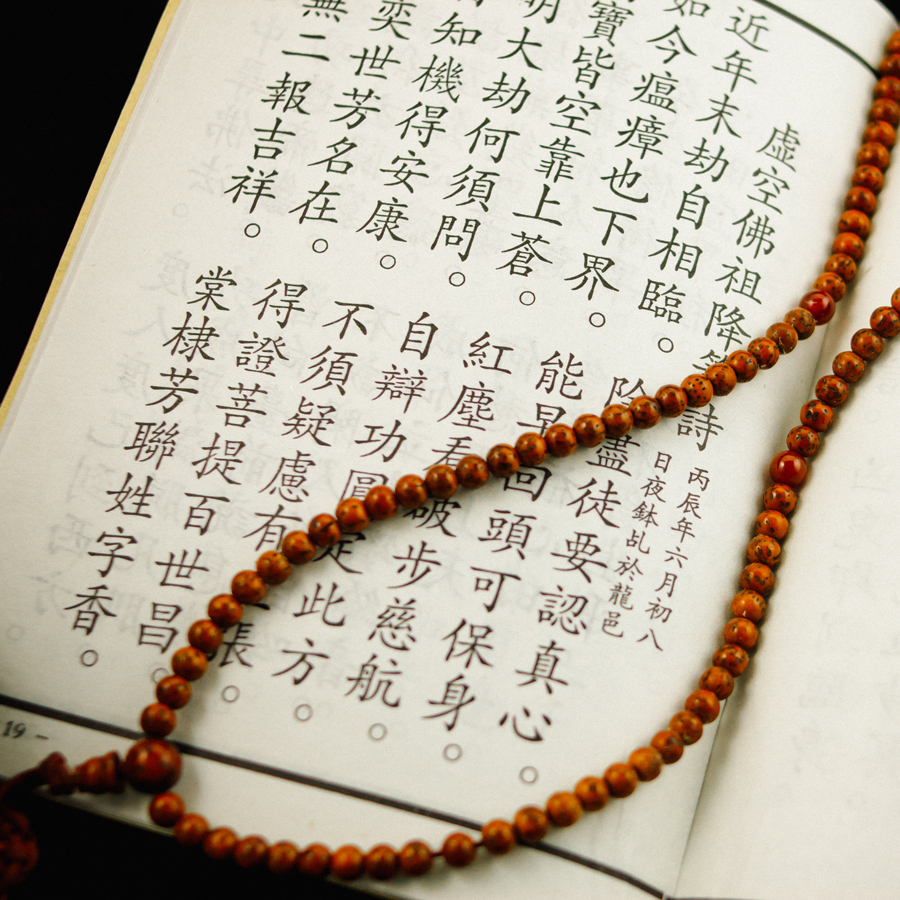 虛空佛祖降筆詩
丙辰年六月初八
日夜鉢乩於龍邑
近年末劫自相臨。 盡徒要認真心。
如今瘟瘴也下界。 能早回頭可保身。
寶皆空靠上蒼。 紅塵看破步慈航。
明大劫何須問。 自辯功圓定此方。
知機得安康。 不須疑慮有張。
奕世芳名在。 得證菩提百世昌。
無二報吉祥。 棠棣芳聯姓字香。
19 -